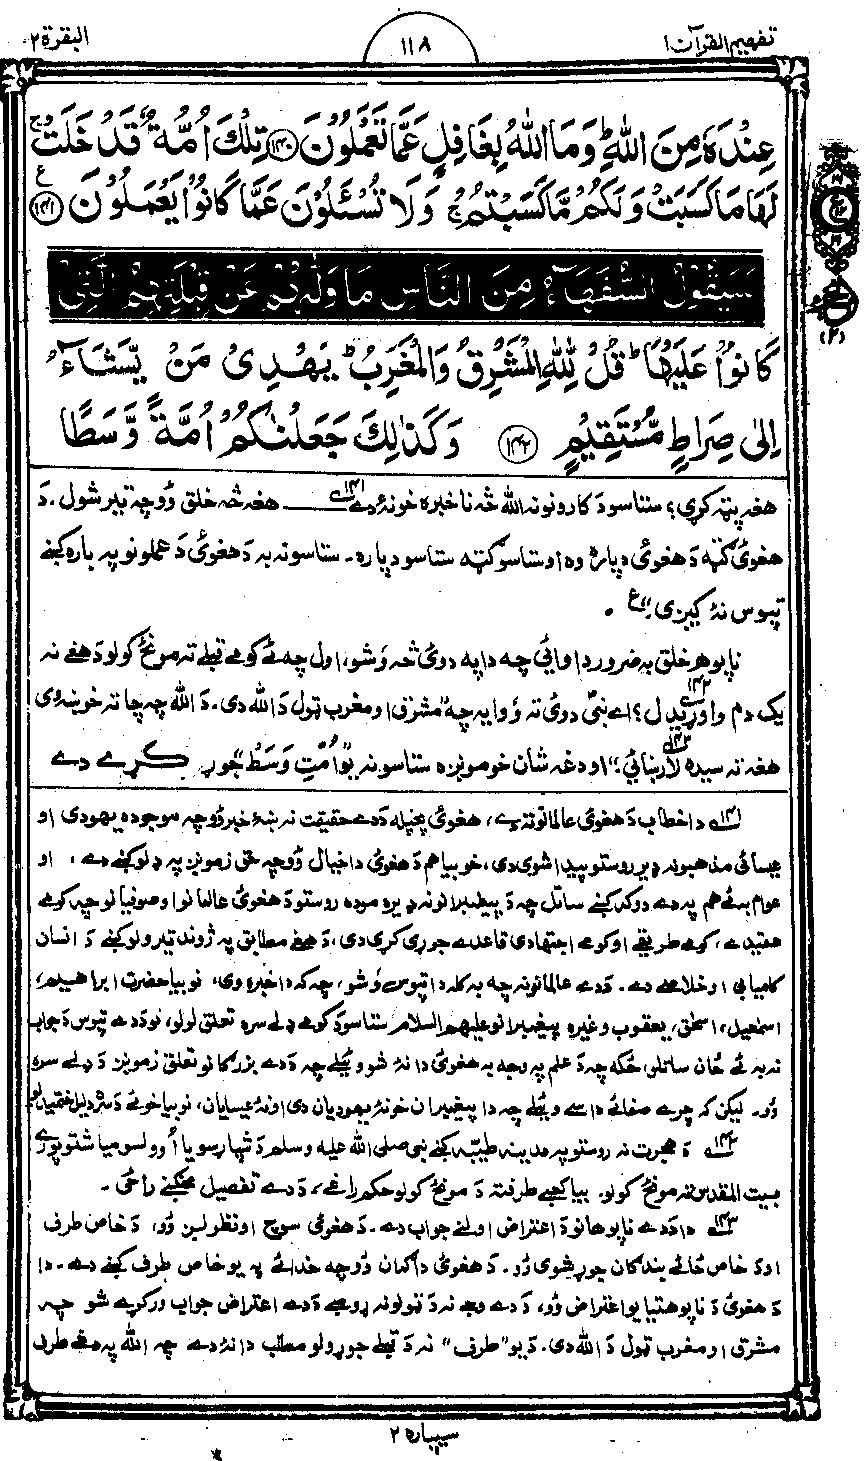 تفهيم القرآن ١
١١٨
البقرة ٢
عِنْدَهٗ مِنَ اللّٰهِ ؕ وَمَا اللّٰهُ بِغَافِلٍ عَمَّا تَعْمَلُوْنَ ﴿١٤٠﴾ تِلْكَ اُمَّةٌ قَدْ خَلَتْ ۚ
لَهَا مَا كَسَبَتْ وَلَكُمْ مَّا كَسَبْتُمْ ۚ وَلَا تُسْـَٔلُوْنَ عَمَّا كَانُوْا يَعْمَلُوْنَ ﴿١٤١﴾ ع
سَيَقُوْلُ السُّفَهَآءُ مِنَ النَّاسِ مَا وَلّٰىهُمْ عَنْ قِبْلَتِهِمُ الَّتِىْ
كَانُوْا عَلَيْهَا ؕ قُلْ لِّلّٰهِ الْمَشْرِقُ وَالْمَغْرِبُ ؕ يَهْدِىْ مَنْ يَّشَآءُ
اِلٰى صِرَاطٍ مُّسْتَقِيْمٍ ﴿١٤٢﴾ وَكَذٰلِكَ جَعَلْنٰكُمْ اُمَّةً وَّسَطًا
هغه پټه کړي؛ ستاسو د کارونو نه الله څه ناخبره خو نۀ دے ١٤١ــه هغه څه خلق وُو چه تېر شول. د
هغوئ ګټه د هغوئ دپاره وه او ستاسو ګټه ستاسو دپاره۔ ستاسو نه به د هغوئ د عملونو په باره کښے
تپوس نۀ کېږی۔ ع
ناپوهه خلق به ضرور دا وائي چه دا په دوئ څه وَشو، اول چه ئے کومے قبلے ته مونځ کولو د هغے نه
يک دم واوړېدل ١٤٢؟ اے نبیؐ دوئ ته وُوايه چه "مشرق او مغرب ټول د الله دی. د الله چه چا ته خوښه وی
هغه ته سيده لار ښائي ١٤٣." او دغه شان خو مونږه ستاسو نه يو "اُمّتِ وَسَطْ" جوړ کړے دے
١٤١ــه دا خطاب د هغوئ عالمانو ته دے، هغوئ پخپله د دے حقيقت نه ښۀ خبر وُو چه موجوده يهودی او
عيسائی مذهبونه ډېر روستو پيدا شوی دی، خو بيا هم د هغوئ دا خيال وُو چه حق زمونږ په ډلو کښے دے، او
عوام ئے هم په دے دوکه کښے ساتل چه د پېغمبرانو نه ډېره موده روستو د هغوئ عالمانو او صوفيانو چه کومے
عقيدے، کومے طريقے او کومے اجتهادی قاعدے جوړې کړی دی، د هغے مطابق په ژوند تېرولو کښے د انسان
کاميابي او خلاصے دے. د دے عالمانو نه چه به کله دا تپوس وَشو، چه که دا خبره وی، نو بيا حضرت ابراهيم،
اسمٰعيل، اسحٰق، يعقوب وغيره پېغمبرانو عليهم السلام ستاسو د کومے ډلے سره تعلق لرلو، نو د دے تپوس د جواب
نه به ئے ځان ساتلو، ځکه چه د علم په وجه به هغوئ دا نۀ شو وئيلے چه د دے بزرګانو تعلق زمونږ د ډلے سره
وُو. ليکن که چرے صفا ئے داسے وئيلے چه دا پېغمبران خو نۀ يهوديان دی او نۀ عيسايان، نو بيا خو ئے دليل ختمېدلو
١٤٢ــه د هجرت نه روستو په مدينه طيبّه کښے نبی صلی الله عليه وسلم د شپاړسو يا اُوولسو مياشتو پورے
بيت المقدس ته مونځ کولو. بيا کعبے طرف ته د مونځ کولو حکم راغے، د دے تفصيل مخکښے راځی۔
١٤٣ــه دا د دے ناپوهانو د اعتراض اولنے جواب دے. د هغوئ سوچ او نظر لږ وُو، د خاص طرف
او د خاص ځائے بندګان جوړ شوی وُو. د هغوئ دا ګمان وُو چه خدائے په يو خاص طرف کښے دے. دا
د هغوئ د ناپوهتيا يو اعتراض وُو، د دے وجے نه د ټولو نه ړومبے د دے اعتراض جواب ورکړے شو چه
مشرق او مغرب ټول د الله دی. د يو "طرف" نه د قبلے جوړولو مطلب دا نۀ دے چه الله په هغے طرف
سيپاره ٢